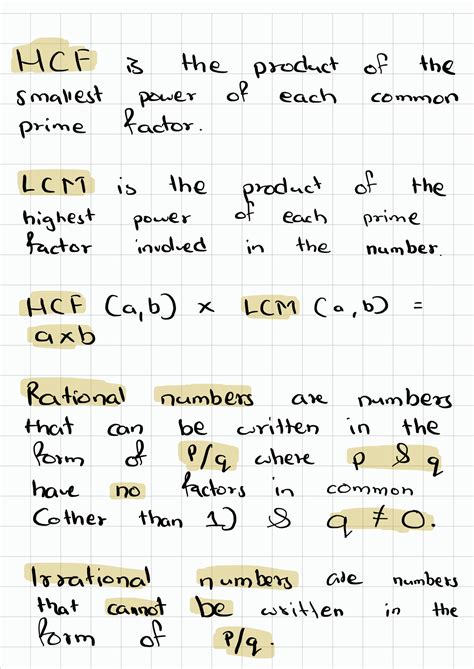 HCF is the product of the
smallest power of each common
prime factor.
LCM is the product of the
highest power of each prime
factor involved in the number.
HCF (a,b) × LCM (a,b) =
a×b
Rational numbers are numbers
that can be written in the
form of P/q where p & q
have no factors in common
(other than 1) & q ≠ 0.
Irrational numbers are numbers
that cannot be written in the
form of P/q.